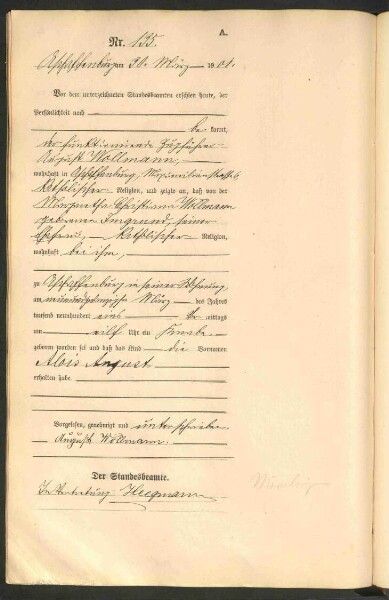 A.
Nr. 135.
Aschaffenburg am 30. März 1901.
Vor dem unterzeichneten Standesbeamten erschien heute, der
Persönlichkeit nach
be kannt,
der funktionierende Zugführer
August Wollmann,
wohnhaft in Aschaffenburg, Maximilianstraße 6
katholischer Religion, und zeigte an, daß von der
Margaretha Christiana Wollmann
geborenen Imgrund, seiner
Ehefrau, katholischer Religion,
wohnhaft bei ihm,
zu Aschaffenburg in seiner Wohnung,
am neunundzwanzigsten März des Jahres
tausend neunhundert eins Vor mittags
um eilf Uhr ein Knabe
geboren worden sei und daß das Kind die Vornamen
Alois August
erhalten habe
Vorgelesen, genehmigt und unterschrieben
August Wollmann.
Der Standesbeamte.
In Vertretung: Hegmann